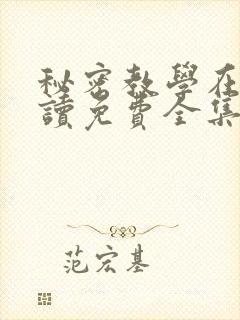 秘密教學在
讀免費全集
范宏基